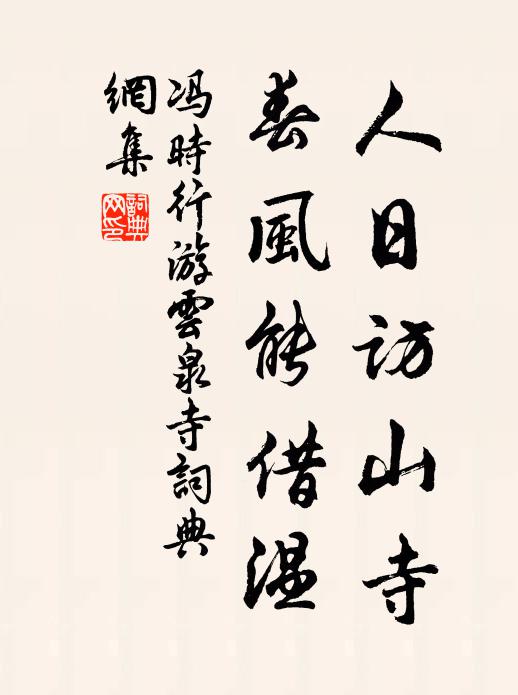 人日訪山寺
春風能借溫
馮時行游雲泉寺詞典
網集
詞典
网印